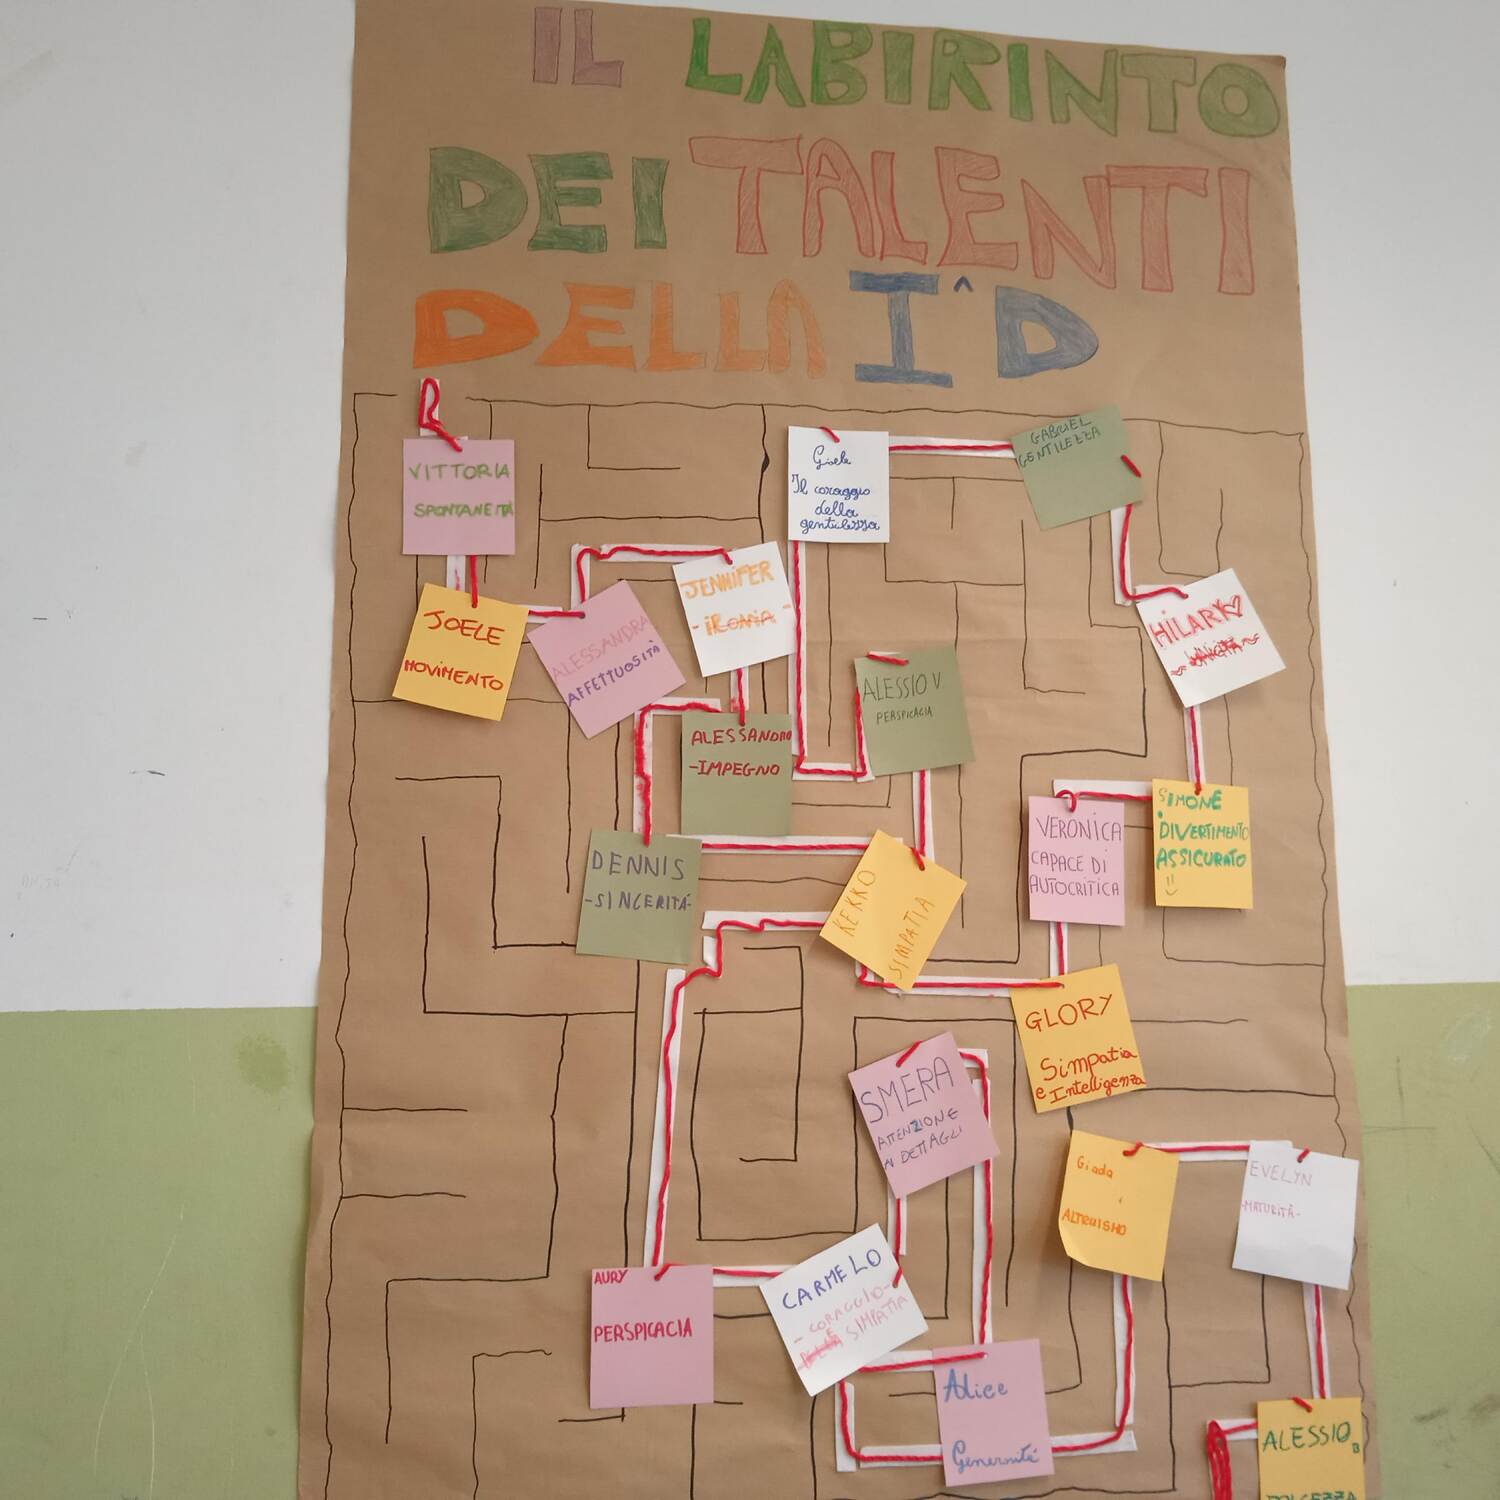 IL LABIRINTO
DEI TALENTI
DELLA I^D
VITTORIA
SPONTANEITÀ
JOELE
MOVIMENTO
ALESSANDRA
AFFETTUOSITÀ
JENNIFER
- IRONIA -
ALESSANDRO
-IMPEGNO
DENNIS
-SINCERITÁ-
Gisele
Il coraggio
della
gentilezza
GABRIEL
GENTILEZZA
HILARY
ALESSIO V
PERSPICACIA
SIMONE
DIVERTIMENTO
ASSICURATO
VERONICA
CAPACE DI
AUTOCRITICA
KEKKO
SIMPATIA
GLORY
Simpatia
e Intelligenza
SMERA
ATTENZIONE
AI DETTAGLI
Giada
ALTRUISMO
EVELYN
-MATURITÀ-
AURY
PERSPICACIA
CARMELO
- CORAGGIO-
E SIMPATIA
Alice
Generosité
ALESSIO B
DOLCEZZA